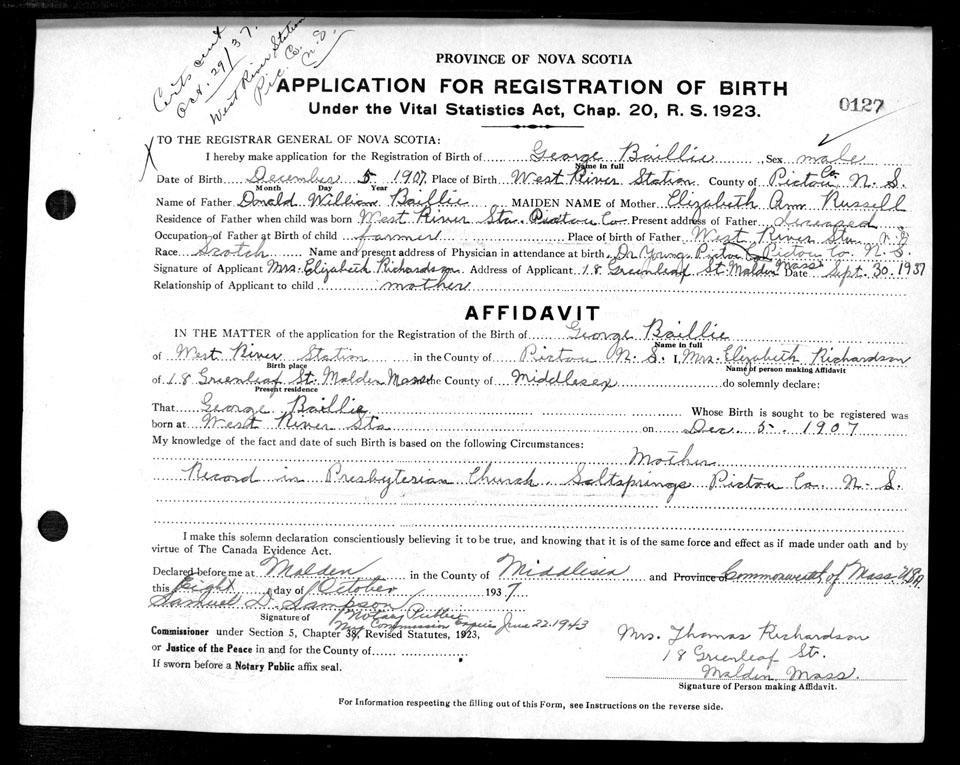 Certs sent
Oct. 29/37.
West River Station
Pic. Co.
N.S.
PROVINCE OF NOVA SCOTIA
APPLICATION FOR REGISTRATION OF BIRTH
Under the Vital Statistics Act, Chap. 20, R. S. 1923.
0127
TO THE REGISTRAR GENERAL OF NOVA SCOTIA:
I hereby make application for the Registration of Birth of George Baillie Sex male
Name in full
Date of Birth December 5 1907 Place of Birth West River Station County of Pictou Co. N. S.
Month Day Year
Name of Father Donald William Baillie MAIDEN NAME of Mother Elizabeth Ann Russell
Residence of Father when child was born West River Sta. Pictou Co Present address of Father deceased
Occupation of Father at Birth of child farmer Place of birth of Father West River Stn. N.S
Race Scotch Name and present address of Physician in attendance at birth Dr Young Pictou Pictou Co. N. S.
Signature of Applicant Mrs. Elizabeth Richardson Address of Applicant 18 Greenleaf St. Malden Mass Date Sept. 30. 1937
Relationship of Applicant to child mother
AFFIDAVIT
IN THE MATTER of the application for the Registration of the Birth of George Baillie
Name in full
of West River Station in the County of Pictou N. S. I, Mrs. Elizabeth Richardson
Birth place Name of person making Affidavit
of 18 Greenleaf St. Malden Mass the County of Middlesex do solemnly declare:
Present residence
That George Baillie Whose Birth is sought to be registered was
born at West River Sta on Dec. 5. 1907
My knowledge of the fact and date of such Birth is based on the following Circumstances:
Mother
Record in Presbyterian Church Saltsprings Pictou Co. N. S.
I make this solemn declaration conscientiously believing it to be true, and knowing that it is of the same force and effect as if made under oath and by
virtue of The Canada Evidence Act.
Declared before me at Malden in the County of Middlesex and Province of Commonwealth of Mass USA.
this Eight day of October 1937
Samuel D. Sampson
Signature of Notary Public
My Commission Expires June 22. 1943
Commissioner under Section 5, Chapter 38, Revised Statutes, 1923,
or Justice of the Peace in and for the County of
If sworn before a Notary Public affix seal.
Mrs. Thomas Richardson
18 Greenleaf St.
Malden Mass.
Signature of Person making Affidavit.
For Information respecting the filling out of this Form, see Instructions on the reverse side.